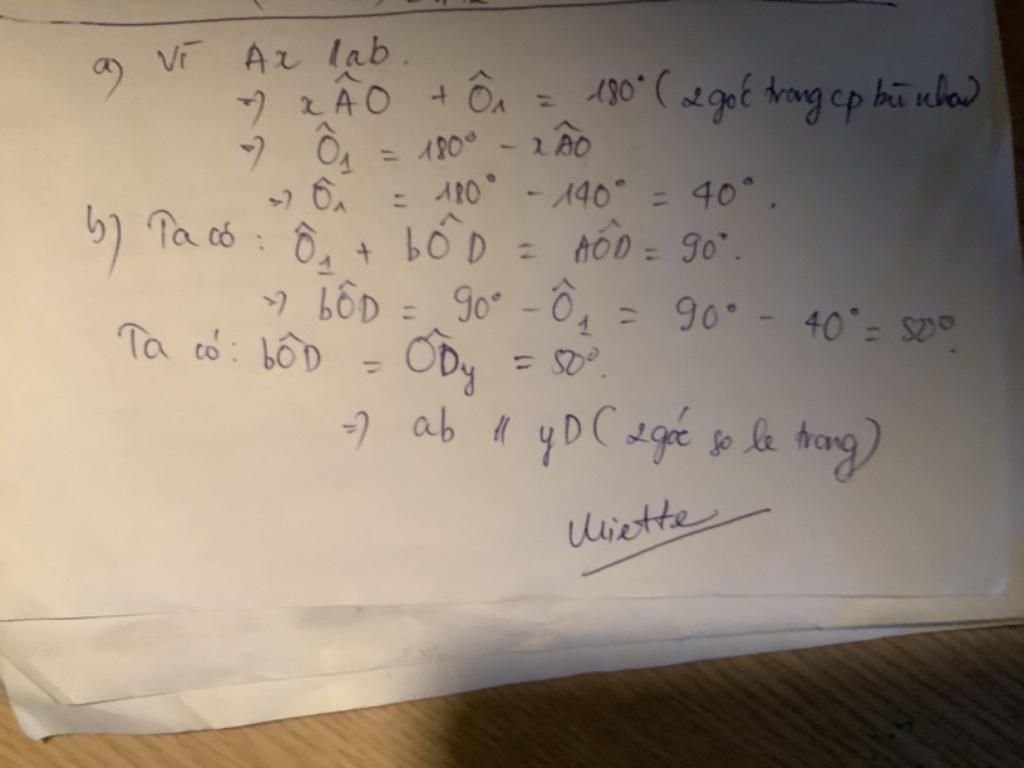 a) Vì Ax // ab.
=> xÂO + Ô1 = 180° ( 2 góc trong cp bù nhau)
=> Ô1 = 180° - xÂO
=> Ô1 = 180° - 140° = 40°.
b) Ta có : Ô1 + bÔD = AÔD = 90°.
=> bÔD = 90° - Ô1 = 90° - 40° = 50°.
Ta có : bÔD = ÔDy = 50°.
=> ab // yD ( 2 góc so le trong)
Miette